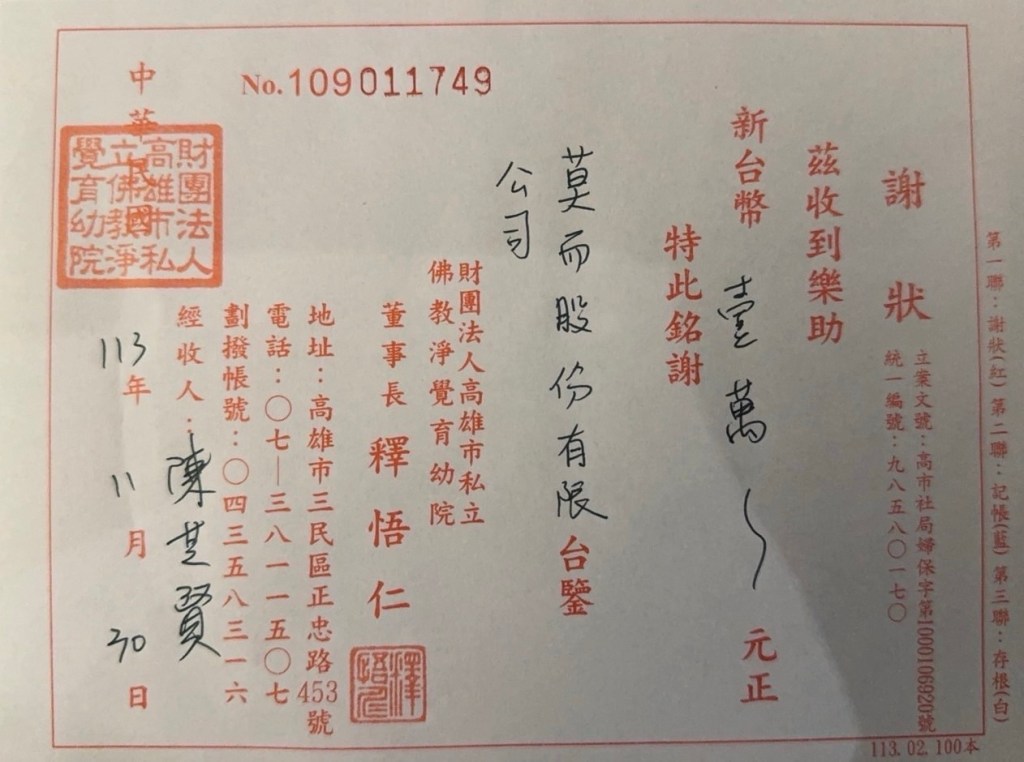 第一聯：謝狀(紅) 第二聯：記帳(藍) 第三聯：存根(白)
謝狀
立案文號：高市社局婦保字第1000106920號
統一編號：九八五八〇一七〇
茲收到樂助
新台幣 壹萬 元正
特此銘謝
莫而股份有限台鑒
公司
財團法人高雄市私立
佛教淨覺育幼院
董事長 釋悟仁
釋悟仁
地址：高雄市三民區正忠路453號
電話：〇七—三八一一五〇七
劃撥帳號：〇四三五八三一六
經收人：陳芝賢
中華民國 113年 11月 30日
財團法人
高雄市私
立佛教淨
覺育幼院
No.109011749
113.02.100本